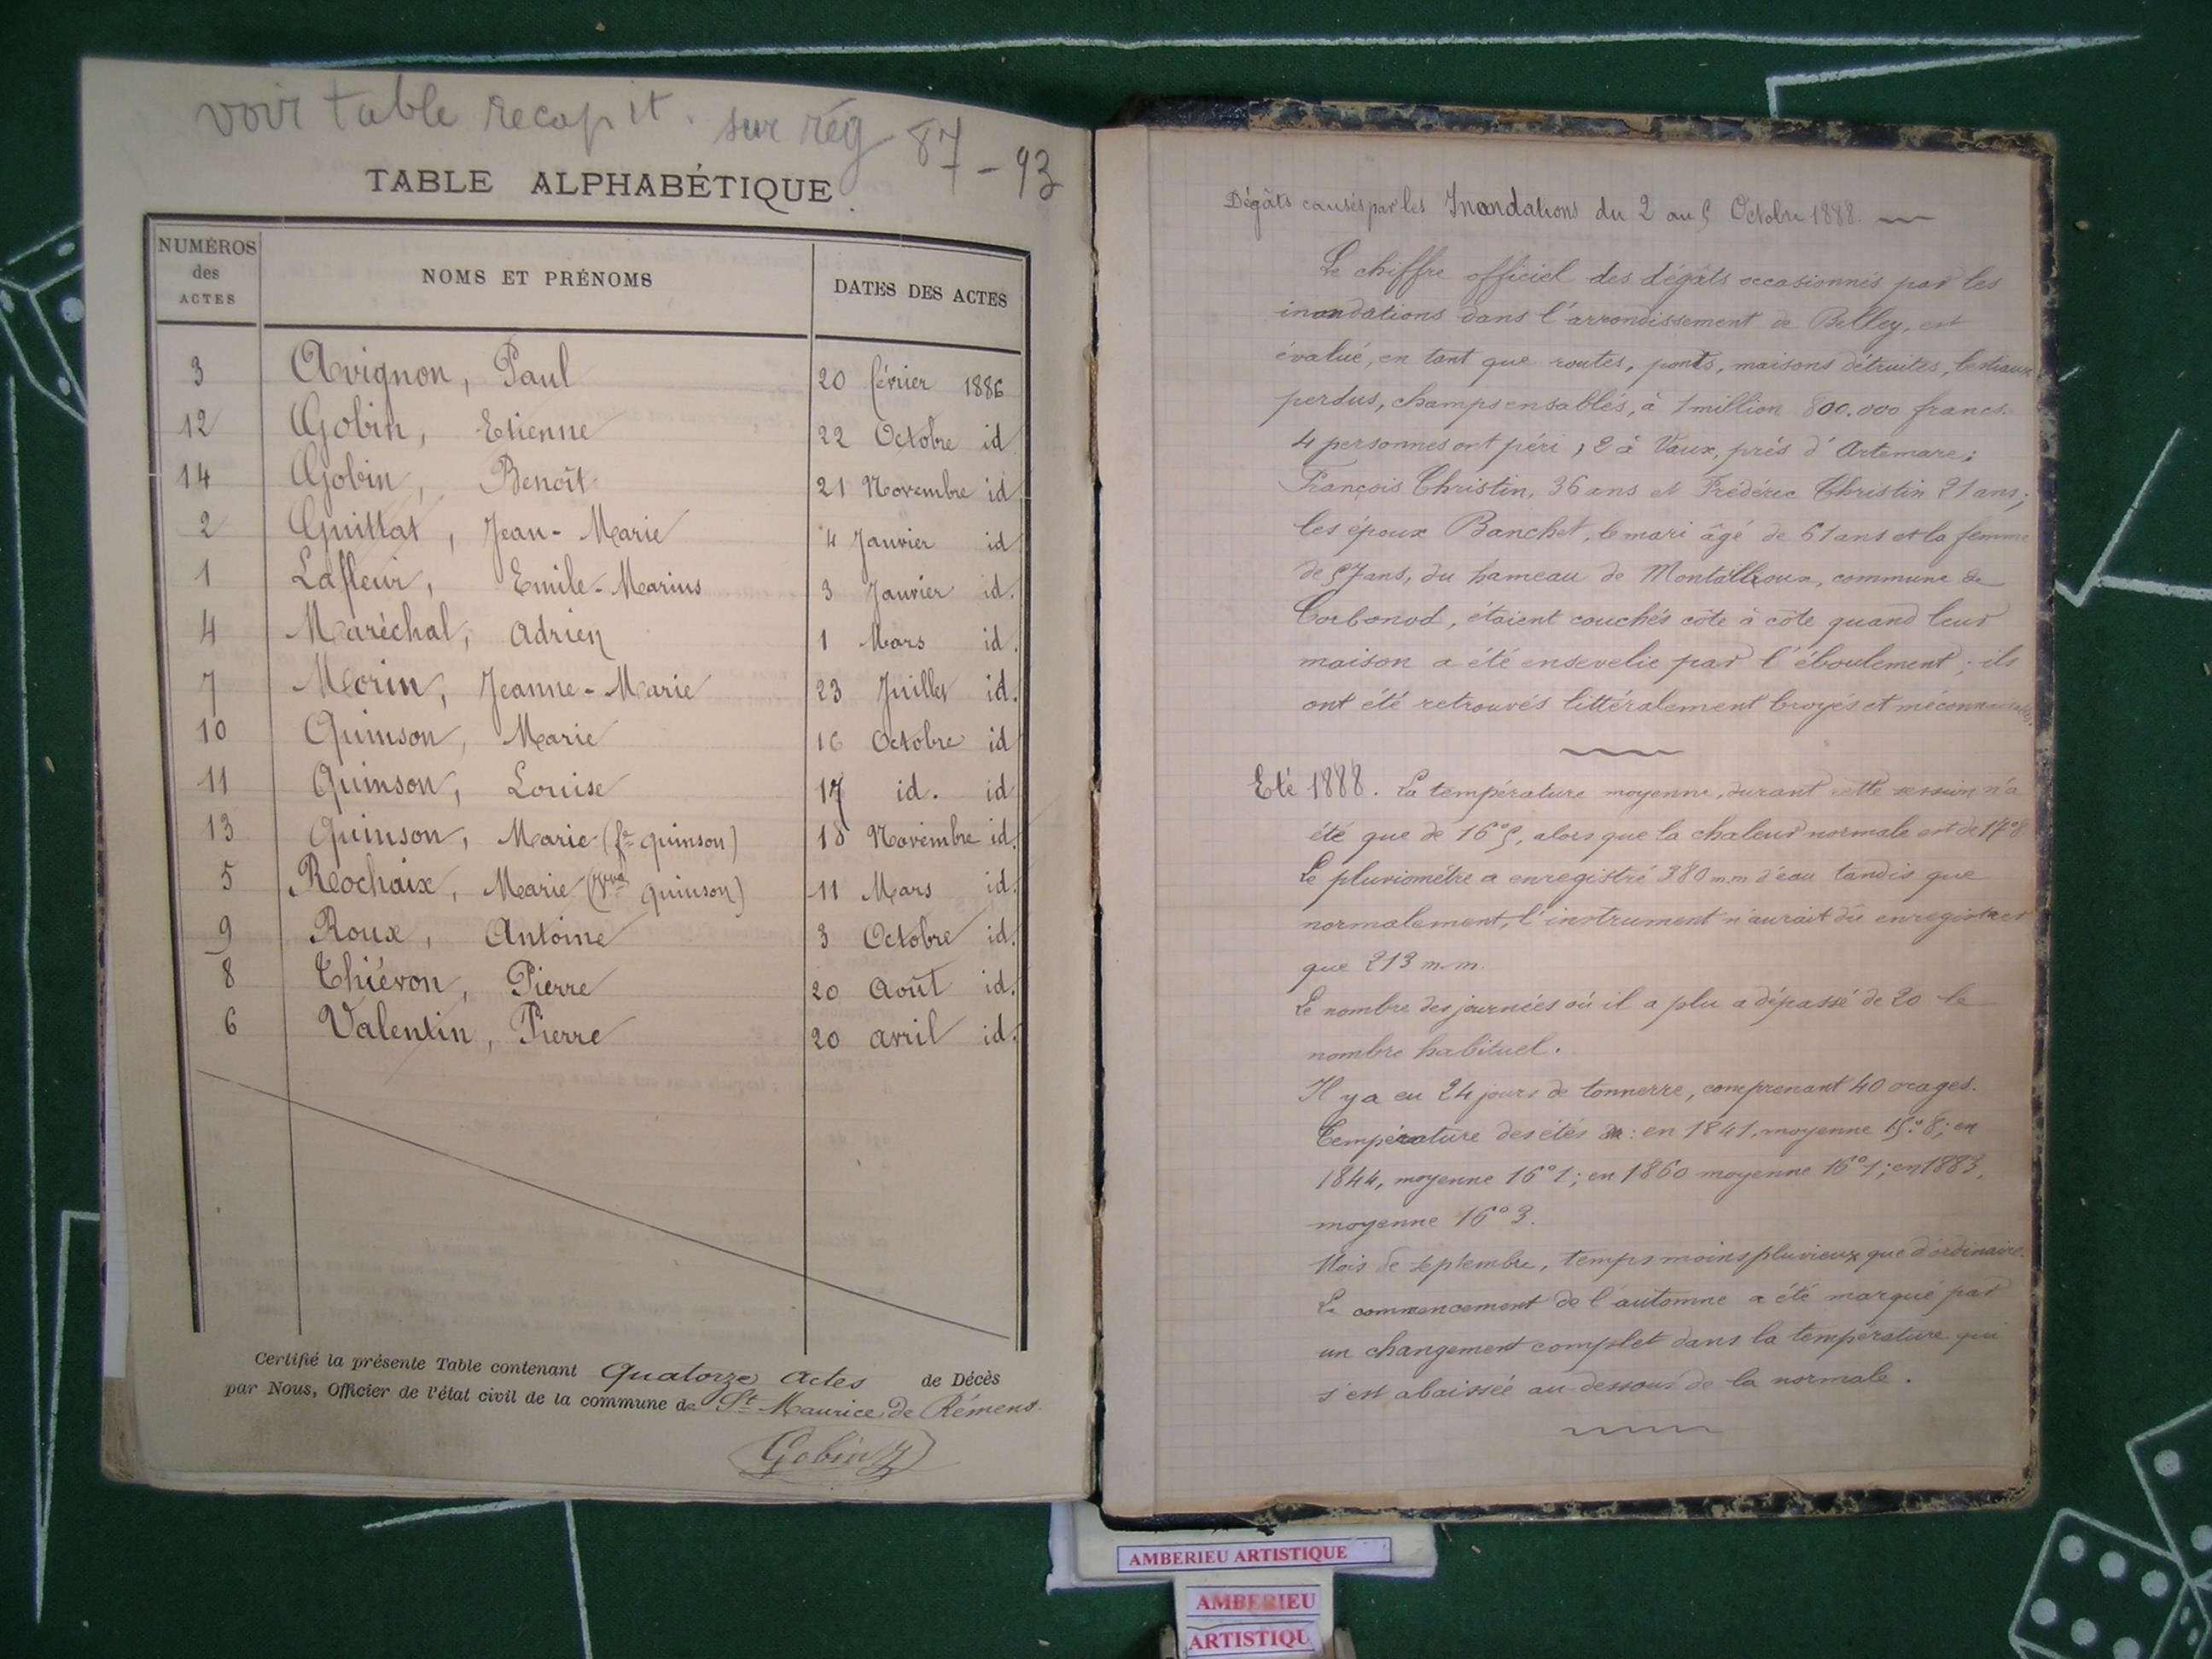 voir table recapit. sur rég 87-93
TABLE ALPHABÉTIQUE
NUMÉROS des ACTES NOMS ET PRÉNOMS DATES DES ACTES
3 Avignon, Paul 20 février 1886
12 Gobin, Etienne 22 Octobre id
14 Gobin, Benoît 21 Novembre id
2 Guittat, Jean-Marie 4 Janvier id
1 Lafleur, Emile-Marius 3 Janvier id.
4 Maréchal, Adrien 1 Mars id.
7 Morin, Jeanne-Marie 23 Juillet id.
10 Quinson, Marie 16 Octobre id
11 Quinson, Louise 17 id. id
13 Quinson, Marie (fe quinson) 18 Novembre id.
5 Rochaix, Marie (vve quinson) 11 Mars id.
9 Roux, Antoine 3 Octobre id.
8 Thiévon, Pierre 20 Août id.
6 Valentin, Pierre 20 avril id.
Certifié la présente Table contenant Quatorze actes de Décès
par Nous, Officier de l'état civil de la commune de St Maurice de Rémens.
Gobin
Dégâts causés par les Inondations du 2 au 5 Octobre 1888.
Le chiffre officiel des dégâts occasionnés par les
inondations dans l'arrondissement de Belley, est
évalué, en tant que routes, ponts, maisons détruites, bestiaux
perdus, champs ensablés, à 1 million 800.000 francs.
4 personnes ont péri, 2 à Vaux, près d'Artemare;
François Christin, 36 ans et Frédéric Christin 21 ans;
les époux Banchet, le mari âgé de 61 ans et la femme
de 57 ans, du hameau de Montallioux, commune de
Corbonod, étaient couchés côte à côte quand leur
maison a été ensevelie par l'éboulement; ils
ont été retrouvés littéralement broyés et
Eté 1888. La température moyenne, durant cette session n'a
été que de 16°5, alors que la chaleur normale est de 17°8
Le pluviomètre a enregistré 380 m.m d'eau tandis que
normalement, l'instrument n'aurait dû enregistrer
que 213 m.m.
Le nombre des journées où il a plu a dépassé de 20 le
nombre habituel.
Il y a eu 24 jours de tonnerre, comprenant 40 orages.
Température des étés : en 1841, moyenne 15°8; en
1844, moyenne 16°1; en 1860 moyenne 16°1; en 1883,
moyenne 16°3.
Mois de septembre, temps moins pluvieux que d'ordinaire.
Le commencement de l'automne a été marqué par
un changement complet dans la température qui
s'est abaissée au-dessous de la normale.
AMBERIEU ARTISTIQUE
AMBERIEU
ARTISTIQU